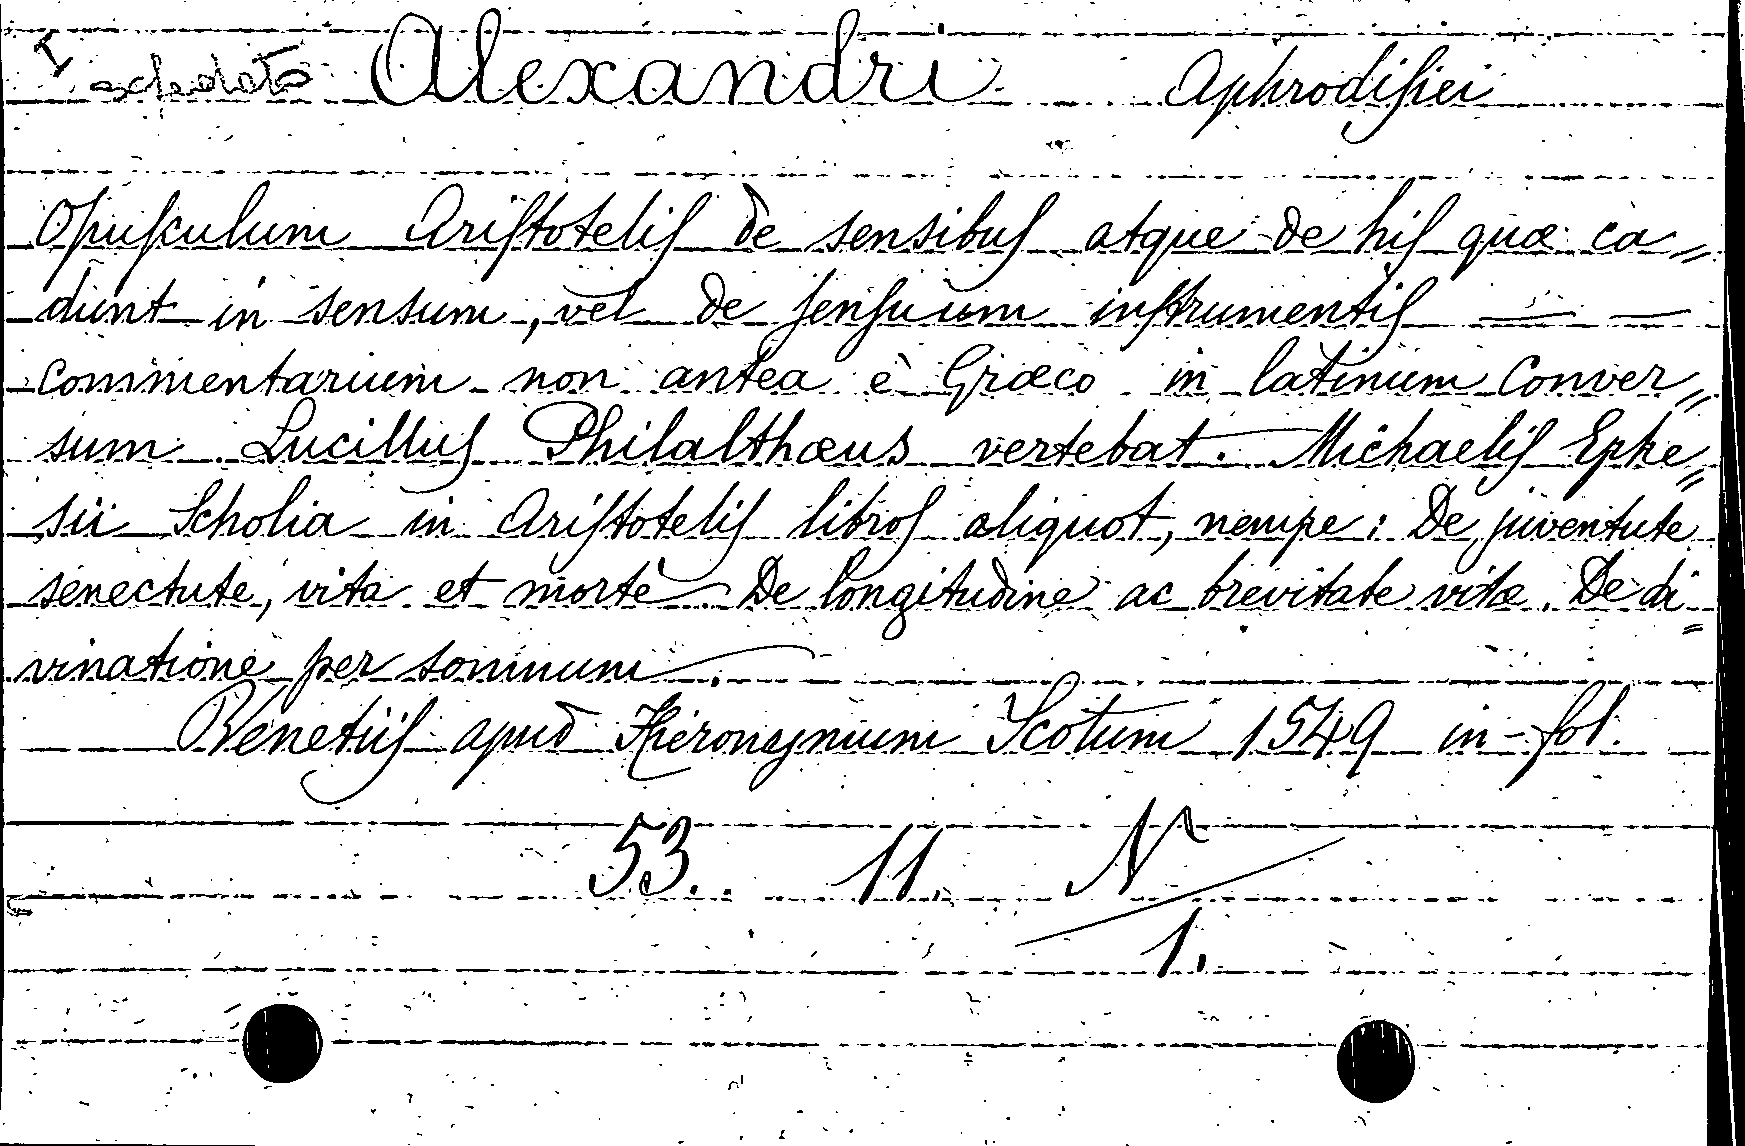 schedato Alexandri Aphrodisiei
Opusculum Aristotelis de sensibus atque de his quæ ca=
dunt in sensum, vel de sensuum instrumentis — —
commentarium non antea è Græco in latinum Conver=
sum Lucillus Philalthæus vertebat. Michaelis Ephe=
sii Scholia in Aristotelis libros aliquot, nempe: De juventute
senectute, vita et morte. De longitudine ac brevitate vitæ. De di=
vinatione per somnum.
Venetiis apud Hieronymum Scotum 1549 in-fol.
53. 11. N
1.